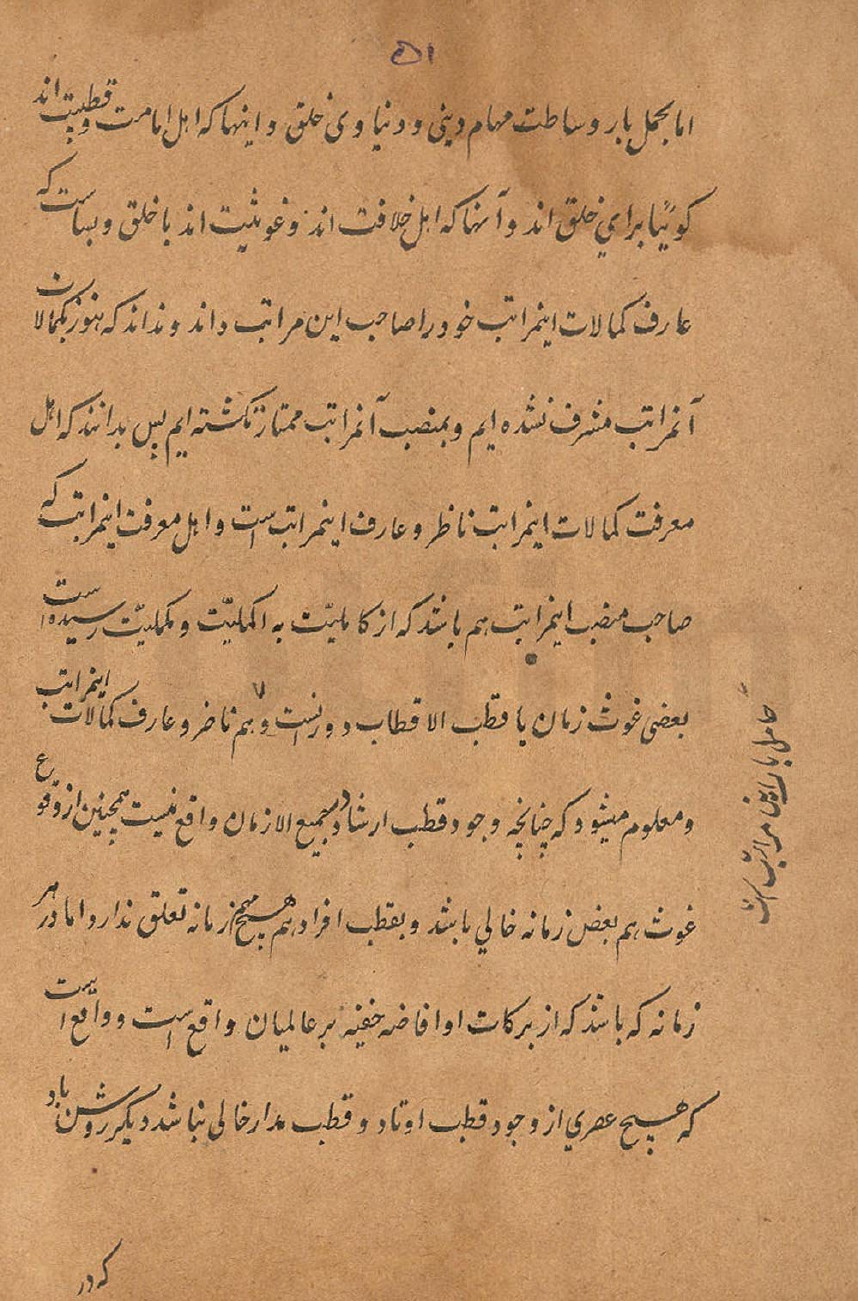 ۵۱
اما بحمل بار وساطت مهام دینی و دنیاوی خلق و اینها که اهل امامت و قطبیت اند
کوئیا برای خلق اند و آنها که اهل خلافت اند و غوثیت اند با خلق و بساست که
عارف کمالات اینمراتب خود را صاحب این مراتب داند و نداند که هنوز بکمالات
آنمراتب مشرف نشده ایم و بمنصب آنمراتب ممتاز نکشته ایم پس بدانند که اهل
معرفت کمالات اینمراتب ناظر و عارف اینمراتب است و اهل معرفت اینمراتب که
صاحب منصب اینمراتب هم باشد که از کاملیّت به اکملیّت و مکملیّت رسیده است
بعضی غوث زمان یا قطب الاقطاب دورانست و هم ناضر و عارف کمالات اینمراتب
حامل بار مراتب است
و معلوم میشود که چنانچه وجود قطب ارشاد در جمیع الازمان واقع نیست همچنین از وقوع
غوث هم بعض زمانه خالی باشد و بقطب افراد هم هیچ زمانه تعلق ندارد اما در هر
زمانه که باشد که از برکات او افاضه خفیه بر عالمیان واقع است و واقع است
که هیچ عصری از وجود قطب اوتاد و قطب مدار خالی نباشد دیکر روشن باد
که در